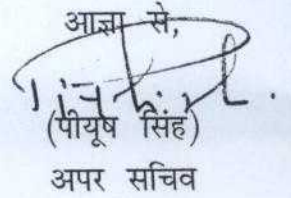 आज्ञा से,
(पीयूष सिंह)
अपर सचिव